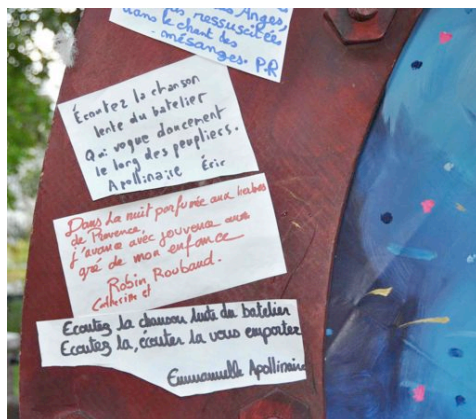 Anges,
ressuscitée
dans le chant des
- mésanges. P.R
Écoutez la chanson
lente du batelier
Qui vogue doucement
le long des peupliers.
Apollinaire Éric
Dans la nuit parfumée aux herbes
de Provence,
j'avance avec jouvence
gré de mon enfance
Robin Roubaud.
Catherine et
Ecoutez la chanson lente du batelier
Ecoutez la, écouter la vous emporter
Emmanuelle Apollinaire